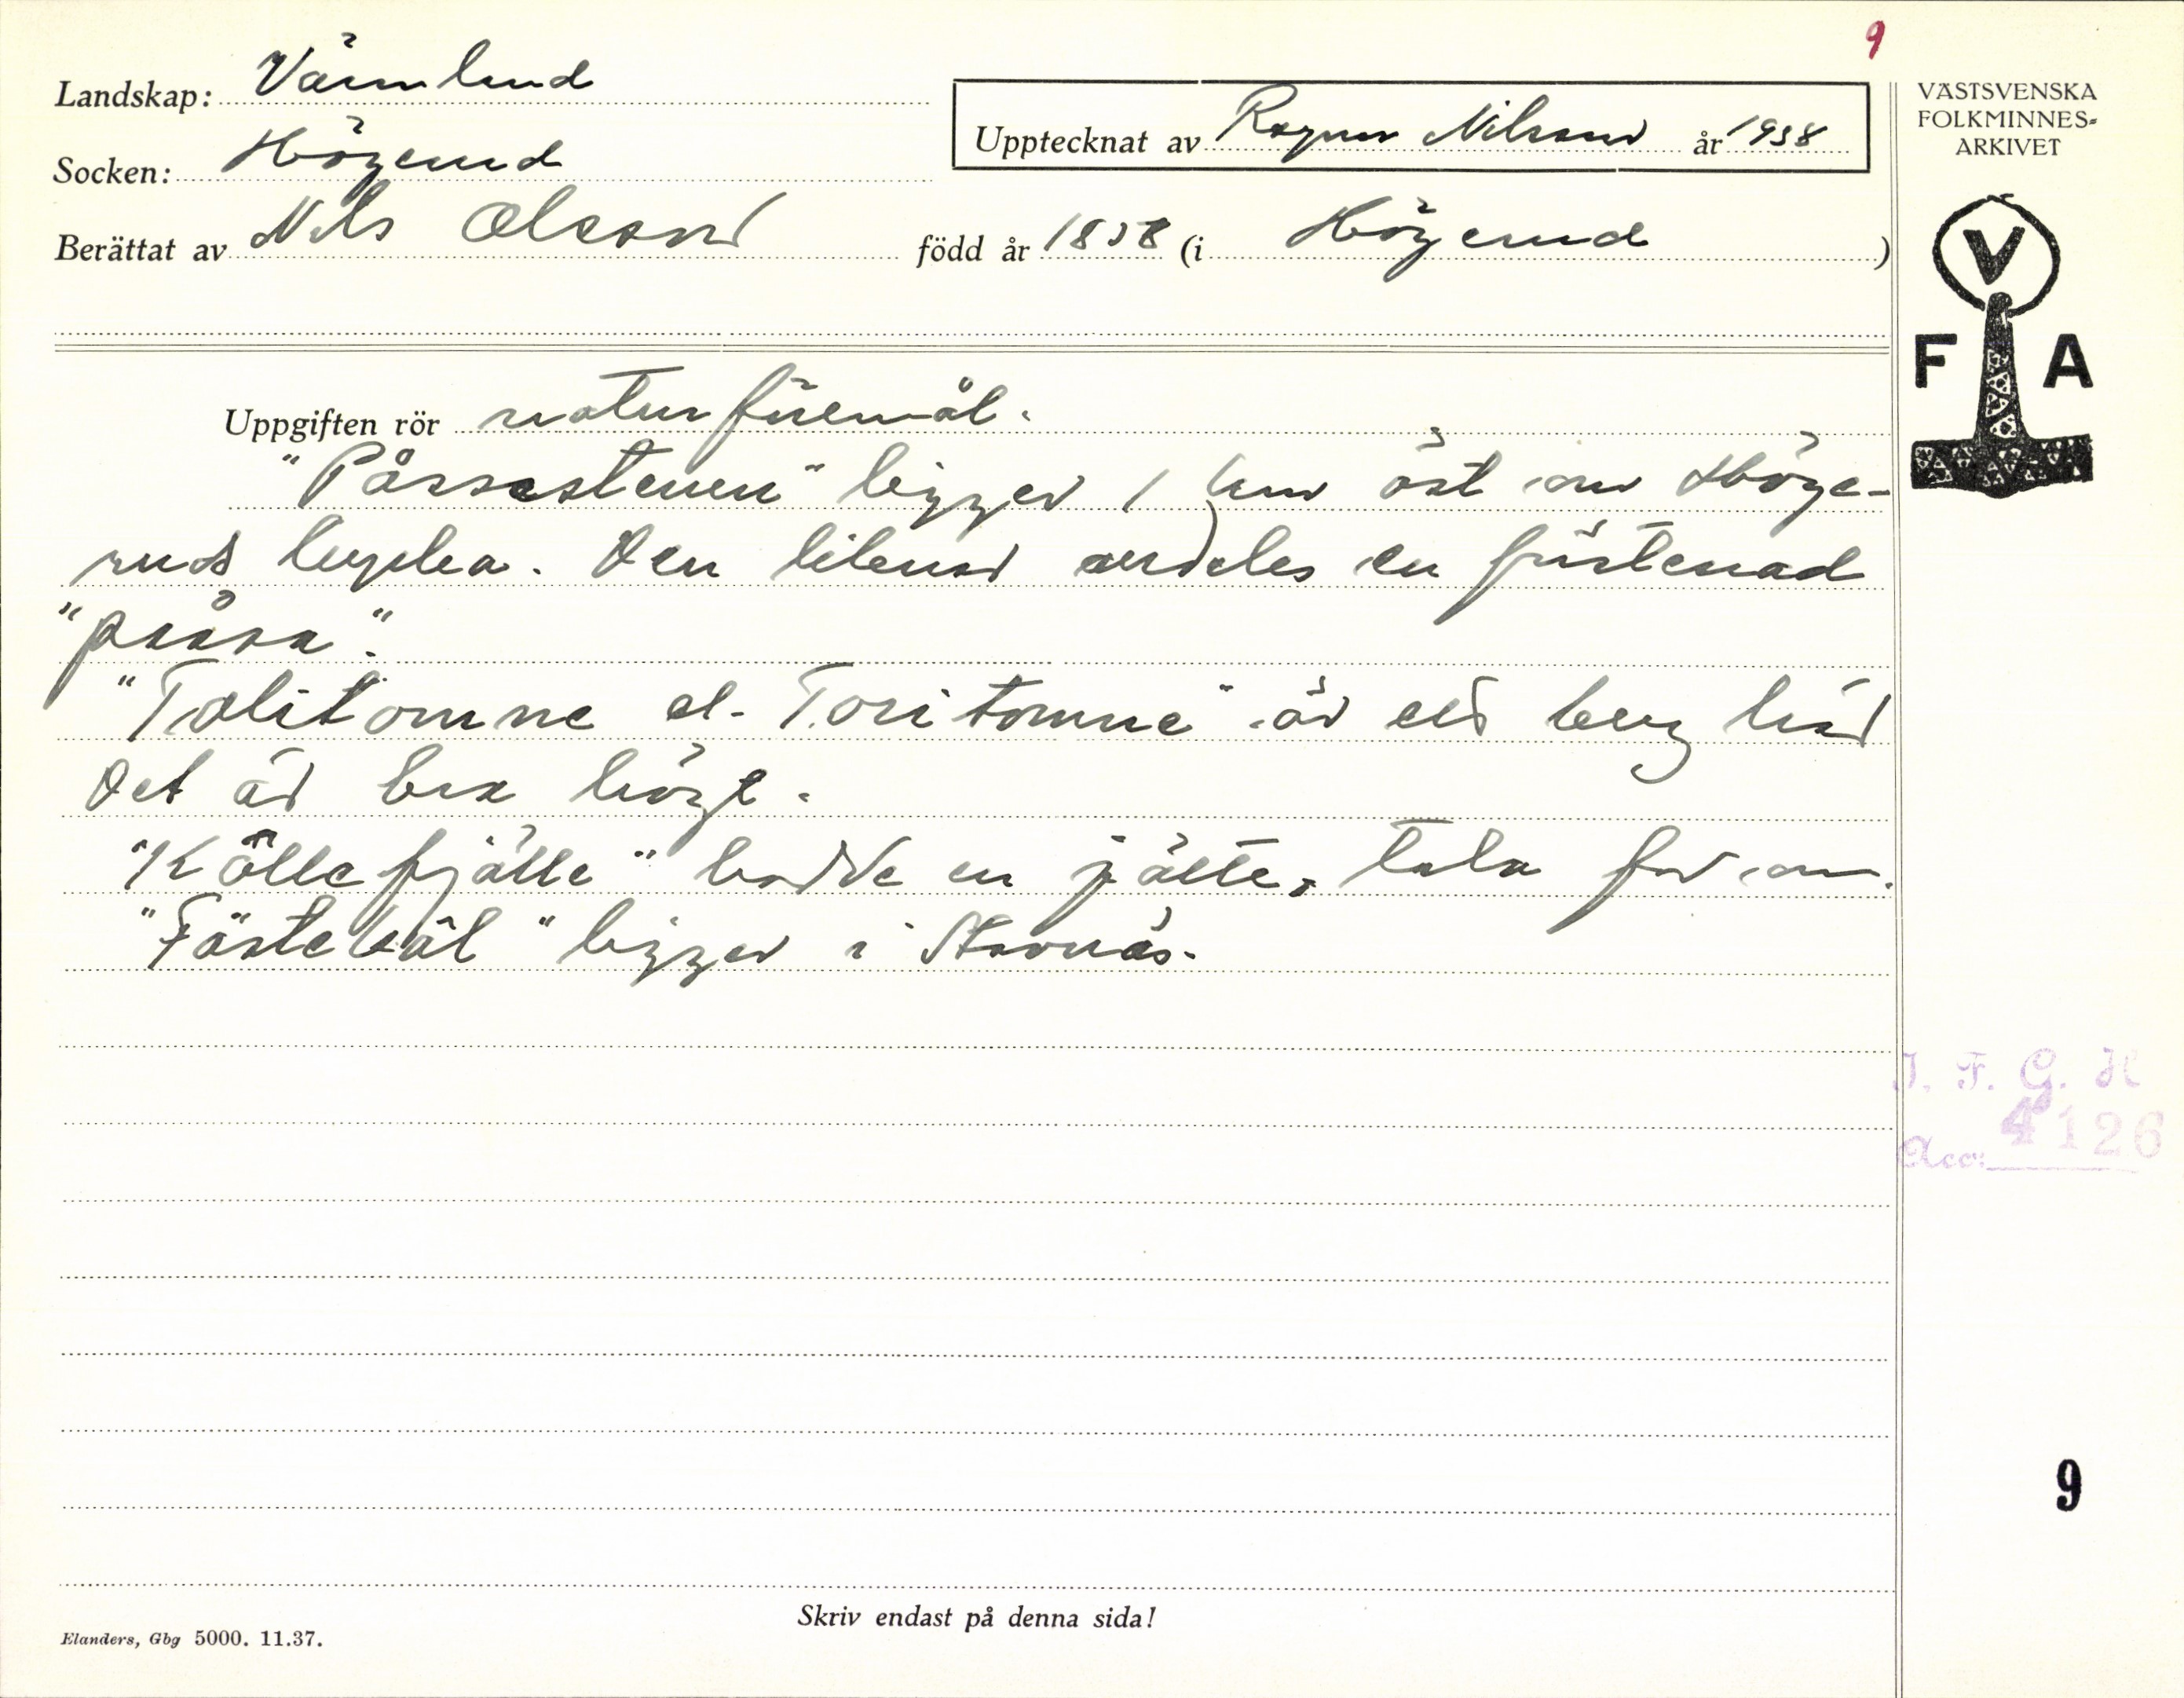 9
Landskap: Värmland
Socken: Högerud
Upptecknat av Ragnar Nilsson år 1938
Berättat av Nils Olsson född år 1858 (i Högerud)
VÄSTSVENSKA
FOLKMINNES-
ARKIVET
V
F A
Uppgiften rör naturföremål.
"Påssastenen" ligger 1 km öst om Höge-
ruds kyrka. Den liknar alldeles en förstenad
"påsa".
"Tolitomne el. Toritomne" är ett berg här
Det är bra högt.
"Källefjälle" bodde en jätte, tala far om.
"Fästebôl" ligger i Stavnäs.
I. F. G. H
Acc: 4126
9
Skriv endast på denna sida!
Elanders, Gbg 5000. 11.37.